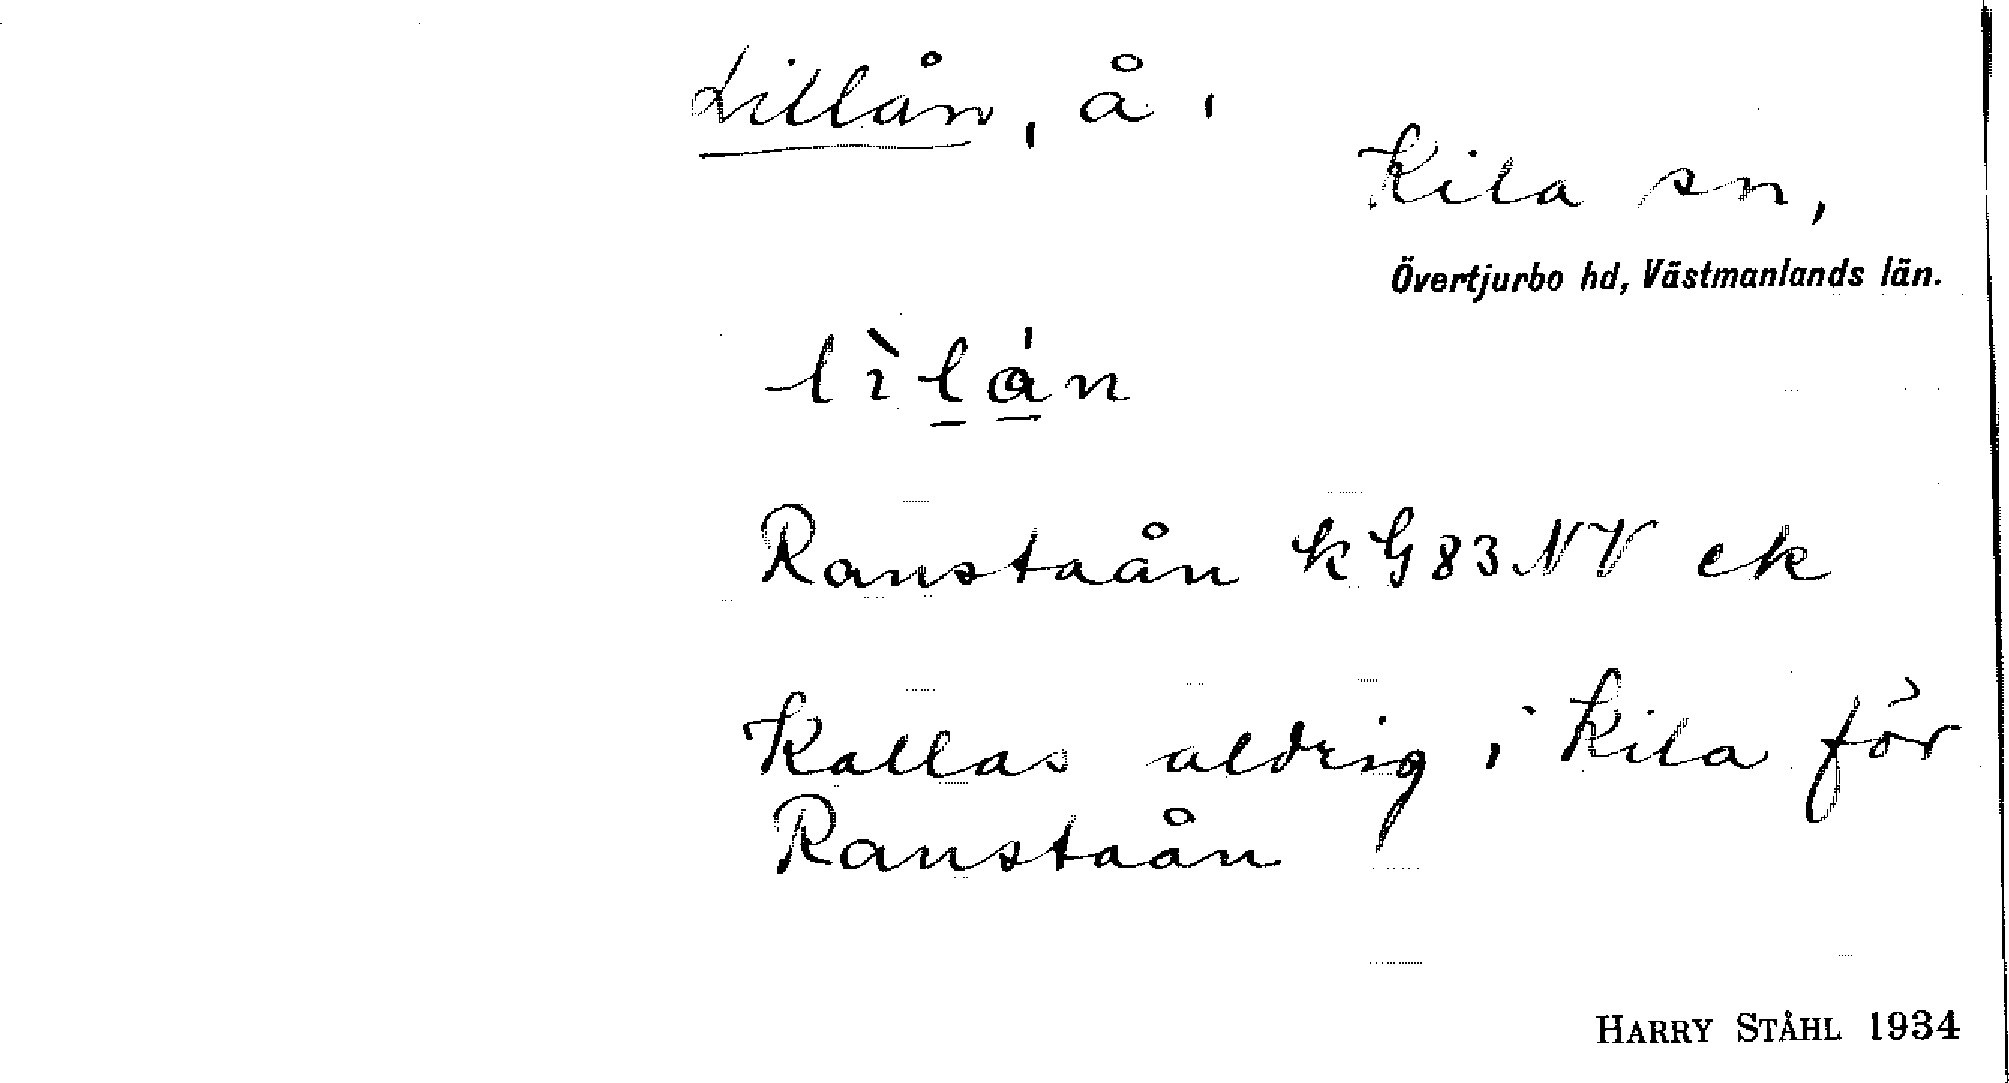 Lillån, å i
Kila sn,
Övertjurbo hd, Västmanlands län.
lìlån
Ranstaån k G 83 NV ek
Kallas aldrig i Kila för
Ranstaån
HARRY STÅHL 1934